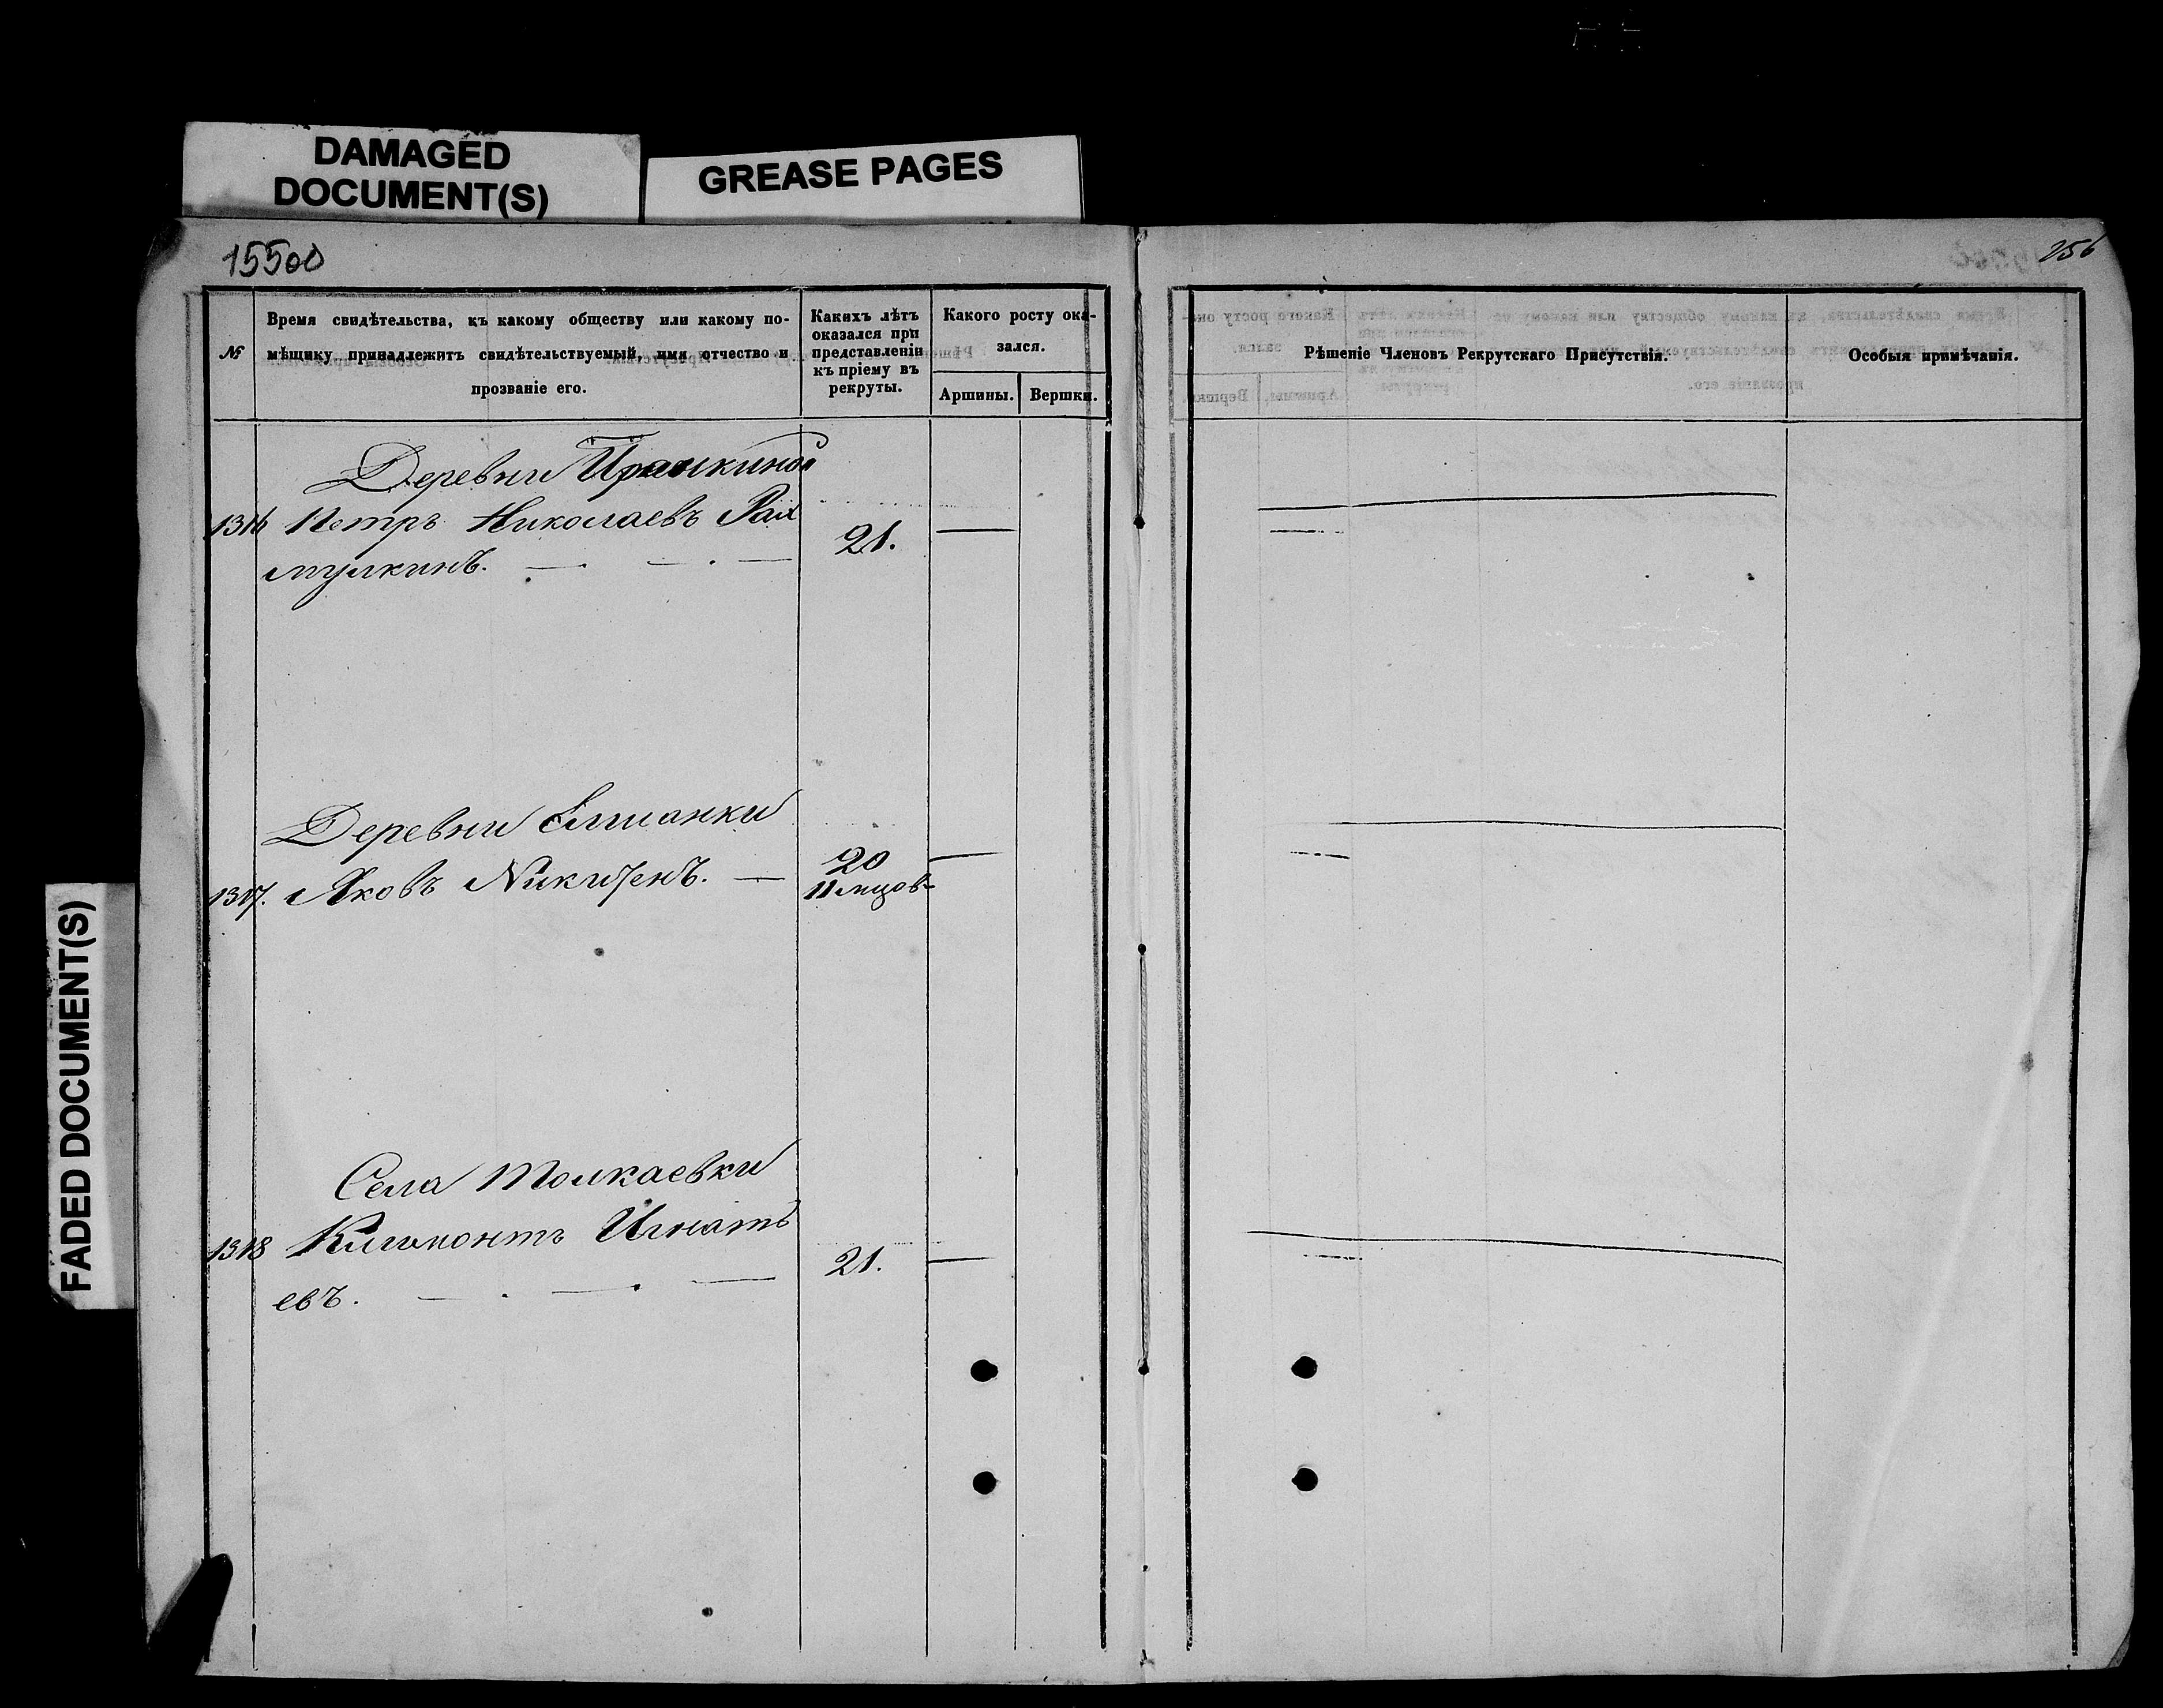 DAMAGED
DOCUMENT(S)
GREASE PAGES
FADED DOCUMENT(S)
15500
256
№
Время свидѣтельства, къ какому обществу или какому по-
мѣщику принадлежитъ свидѣтельствуемый, имя отчество и
прозваніе его.
Какихъ лѣтъ
оказался при
представленіи
къ пріему въ
рекруты.
Какого росту ока-
зался.
Аршины.
Вершки.
Рѣшеніе Членовъ Рекрутскаго Присутствія.
Особыя примѣчанія.
Деревни
1316 Петръ Николаевъ
21.
Деревни Елшанки
1317. Яковъ
20
11 мцов
Села Толкаевки
1318 Игнать
евъ.
21.